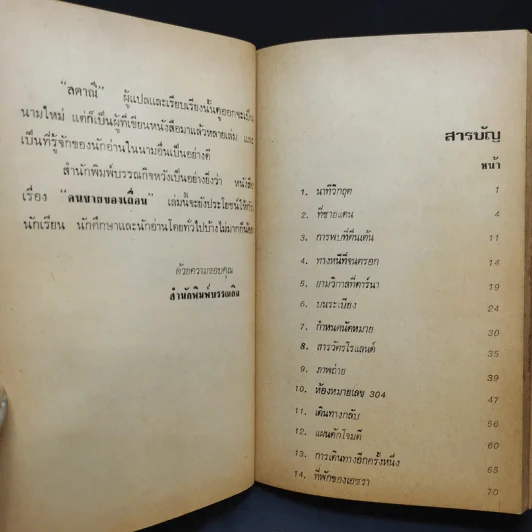 “ลดาณี” ผู้แปลและเรียบเรียงนั้นดูออกจะเป็น
นามใหม่ แต่ก็เป็นผู้ที่เขียนหนังสือมาแล้วหลายเล่ม และ
เป็นที่รู้จักของนักอ่านในนามอื่นเป็นอย่างดี
สำนักพิมพ์บรรณกิจหวังเป็นอย่างยิ่งว่า หนังสือ
เรื่อง “คนขายของเถื่อน” เล่มนี้จะยังประโยชน์ให้กับ
นักเรียน นักศึกษาและนักอ่านโดยทั่วไปบ้างไม่มากก็น้อย
ด้วยความขอบคุณ
สำนักพิมพ์บรรณกิจ
สารบัญ
หน้า
1. นาทีวิกฤต 1
2. ที่ชายแดน 4
3. การพบที่ตื่นเต้น 11
4. ทางหนีที่จนตรอก 14
5. ยามวิกาลที่ตาร์นา 19
6. บนระเบียง 24
7. กำหนดนัดหมาย 30
8. สารวัตรโรแลนด์ 35
9. ภาพถ่าย 39
10. ห้องหมายเลข 304 47
11. เดินทางกลับ 56
12. แผนดักโจมตี 60
13. การเดินทางอีกครั้งหนึ่ง 65
14. ที่พักของเอซรา 70